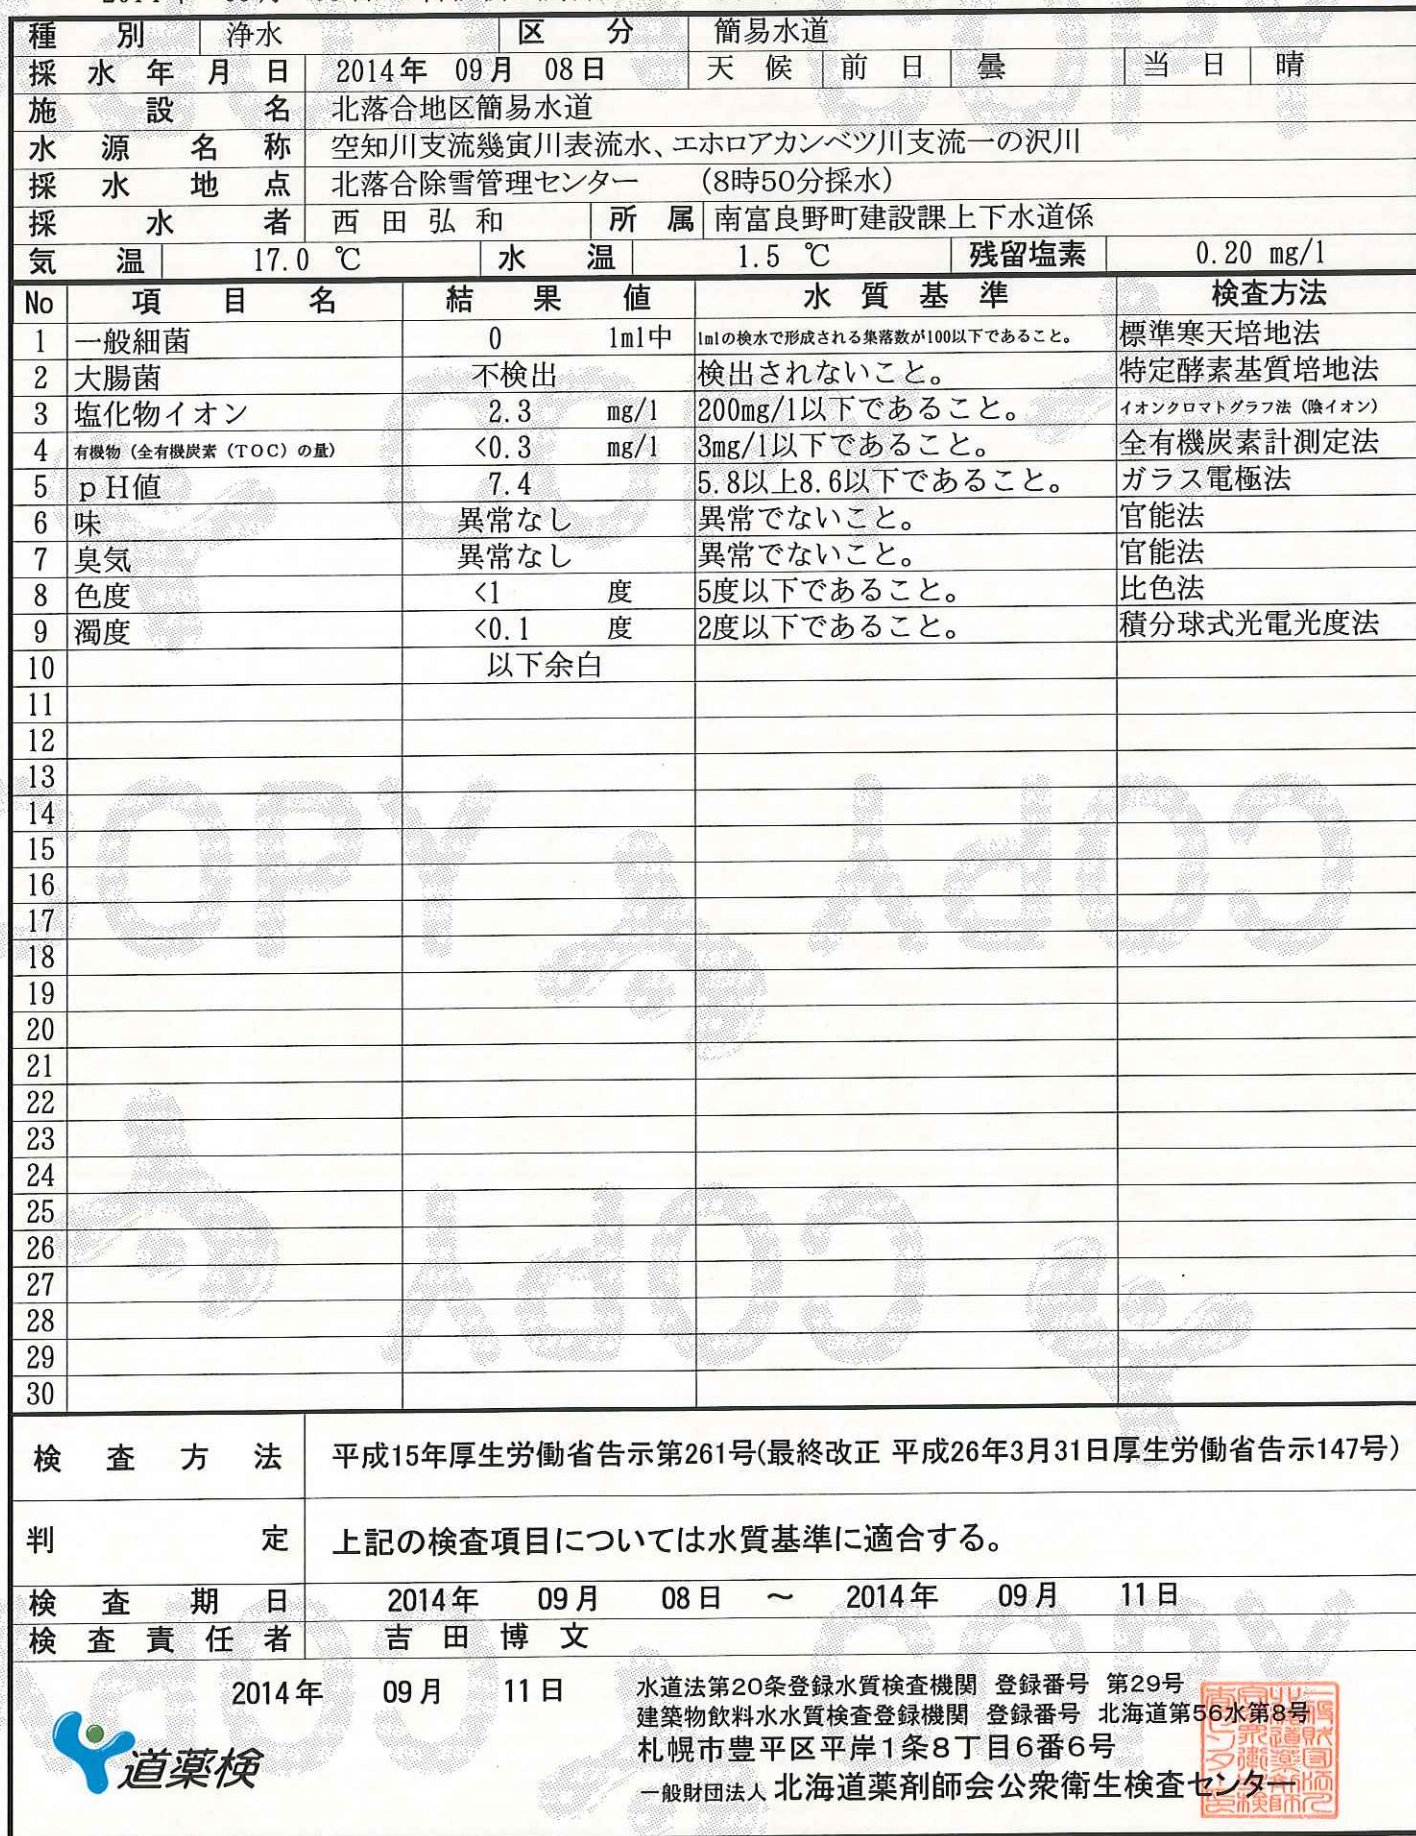 種別 浄水 区分 簡易水道
採水年月日 2014年 09月 08日 天候 前日 曇 当日 晴
施設名 北落合地区簡易水道
水源名称 空知川支流幾寅川表流水、エホロアカンベツ川支流一の沢川
採水地点 北落合除雪管理センター (8時50分採水)
採水者 西田弘和 所属 南富良野町建設課上下水道係
気温 17.0 ℃ 水温 1.5 ℃ 残留塩素 0.20 mg/l
No 項目名 結果値 水質基準 検査方法
1 一般細菌 0 1ml中 1mlの検水で形成される集落数が100以下であること。 標準寒天培地法
2 大腸菌 不検出 検出されないこと。 特定酵素基質培地法
3 塩化物イオン 2.3 mg/l 200mg/l以下であること。 イオンクロマトグラフ法（陰イオン）
4 有機物（全有機炭素（TOC）の量） <0.3 mg/l 3mg/l以下であること。 全有機炭素計測定法
5 pH値 7.4 5.8以上8.6以下であること。 ガラス電極法
6 味 異常なし 異常でないこと。 官能法
7 臭気 異常なし 異常でないこと。 官能法
8 色度 <1 度 5度以下であること。 比色法
9 濁度 <0.1 度 2度以下であること。 積分球式光電光度法
10 以下余白
11
12
13
14
15
16
17
18
19
20
21
22
23
24
25
26
27
28
29
30
検査方法 平成15年厚生労働省告示第261号(最終改正 平成26年3月31日厚生労働省告示147号)
判定 上記の検査項目については水質基準に適合する。
検査期日 2014年 09月 08日 ～ 2014年 09月 11日
検査責任者 吉田博文
2014年 09月 11日
水道法第20条登録水質検査機関 登録番号 第29号
建築物飲料水水質検査登録機関 登録番号 北海道第56水第8号
札幌市豊平区平岸1条8丁目6番6号
一般財団法人 北海道薬剤師会公衆衛生検査センター
道薬検
COPY